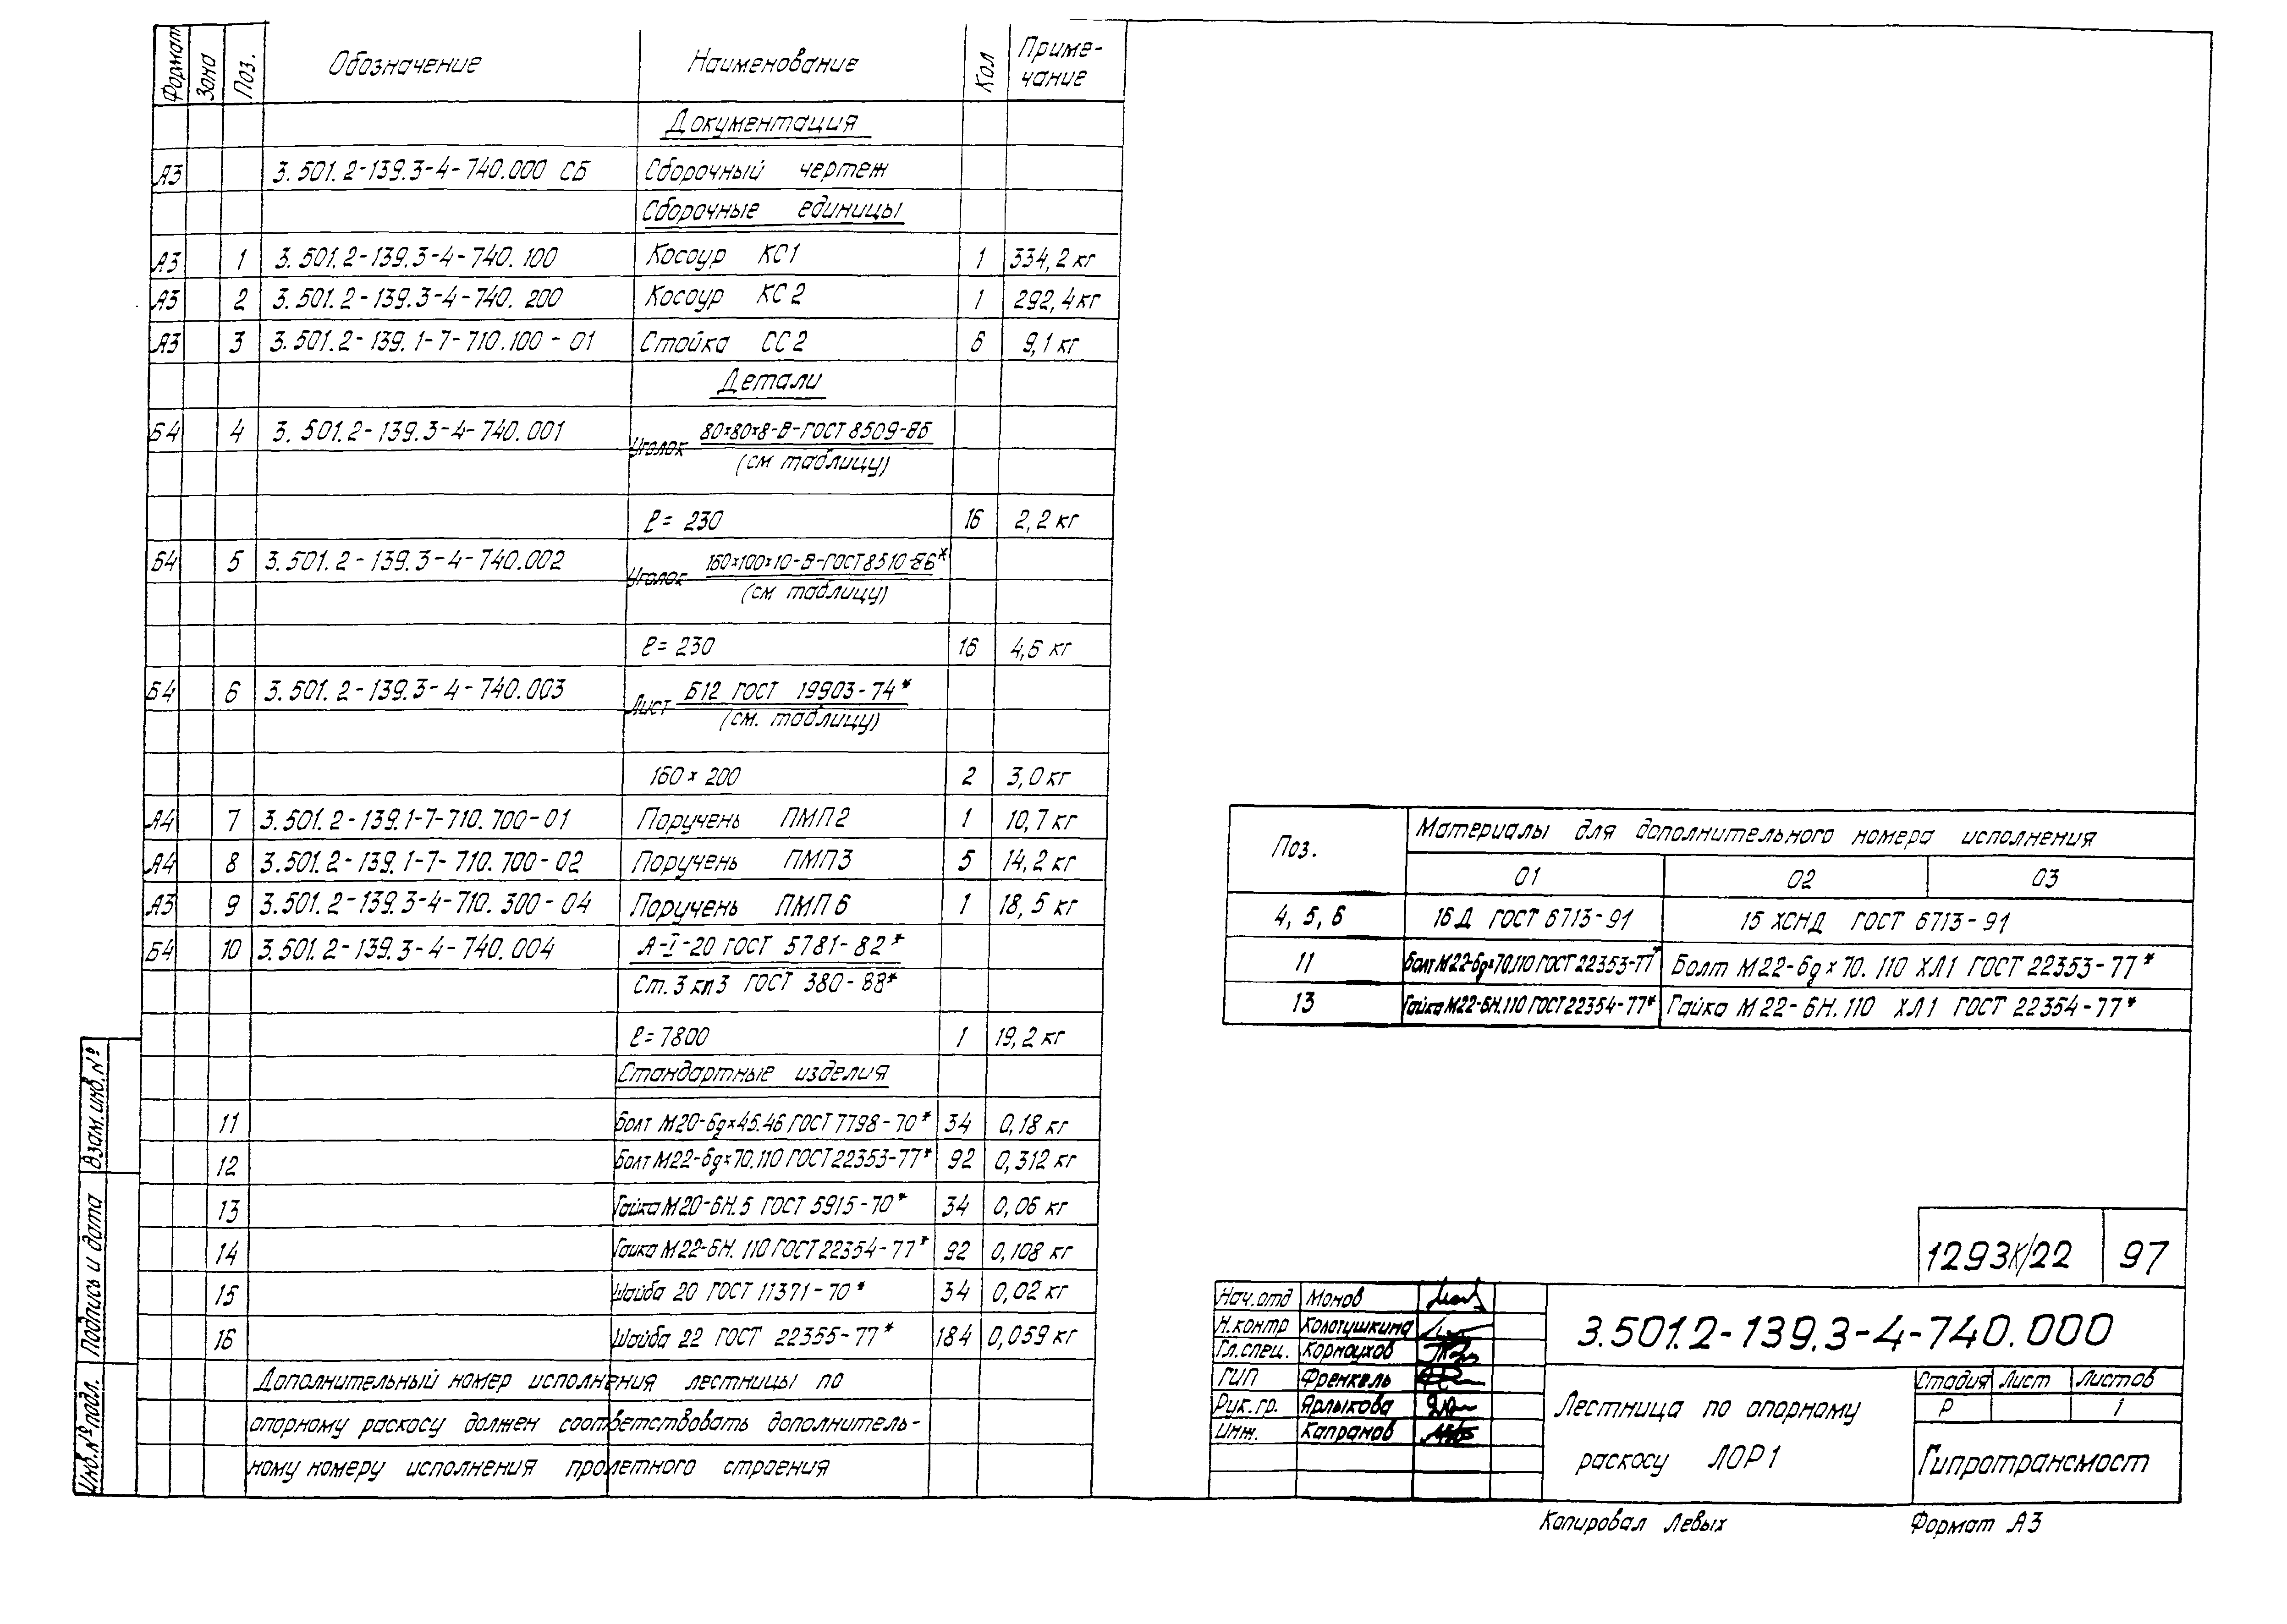 Формат Зона Поз. Обозначение Наименование Кол Приме-
чание
Документация
А3 3.501.2-139.3-4-740.000 СБ Сборочный чертеж
Сборочные единицы
А3 1 3.501.2-139.3-4-740.100 Косоур КС1 1 334,2 кг
А3 2 3.501.2-139.3-4-740.200 Косоур КС2 1 292,4 кг
А3 3 3.501.2-139.1-7-710.100-01 Стойка СС2 6 9,1 кг
Детали
Б4 4 3.501.2-139.3-4-740.001 Уголок 80×80×8-В-ГОСТ 8509-86
(см таблицу)
ℓ=230 16 2,2 кг
Б4 5 3.501.2-139.3-4-740.002 Уголок 160×100×10-В-ГОСТ 8510-86*
(см таблицу)
ℓ=230 16 4,6 кг
Б4 6 3.501.2-139.3-4-740.003 Лист Б12 ГОСТ 19903-74*
(см. таблицу)
160×200 2 3,0 кг
А4 7 3.501.2-139.1-7-710.700-01 Поручень ПМП2 1 10,7 кг
А4 8 3.501.2-139.1-7-710.700-02 Поручень ПМП3 5 14,2 кг
А3 9 3.501.2-139.3-4-710.300-04 Поручень ПМП6 1 18,5 кг
Б4 10 3.501.2-139.3-4-740.004 А-I-20 ГОСТ 5781-82*
Ст.3 кп3 ГОСТ 380-88*
ℓ=7800 1 19,2 кг
Стандартные изделия
11 Болт М20-6g×45.46 ГОСТ 7798-70* 34 0,18 кг
12 Болт М22-6g×70.110 ГОСТ 22353-77* 92 0,312 кг
13 Гайка М20-6Н.5 ГОСТ 5915-70* 34 0,06 кг
14 Гайка М22-6Н.110 ГОСТ 22354-77* 92 0,108 кг
15 Шайба 20 ГОСТ 11371-70* 34 0,02 кг
16 Шайба 22 ГОСТ 22355-77* 184 0,059 кг
Дополнительный номер исполнения лестницы по
опорному раскосу должен соответствовать дополнитель-
ному номеру исполнения пролетного строения
Взам.инв.№
Подпись и дата
Инв.№ подл.
Поз. Материалы для дополнительного номера исполнения
01 02 03
4, 5, 6 16Д ГОСТ 6713-91 15 ХСНД ГОСТ 6713-91
11 Болт М22-6g×70.110 ГОСТ 22353-77* Болт М22-6g×70.110 ХЛ1 ГОСТ 22353-77*
13 Гайка М22-6Н.110 ГОСТ 22354-77* Гайка М22-6Н.110 ХЛ1 ГОСТ 22354-77*
1293К/22 97
Нач.отд Монов
Н.контр Колотушкина
Гл.спец. Корноухов
ГИП Френкель
Рук.гр. Ярлыкова
Инж. Капранов
3.501.2-139.3-4-740.000
Лестница по опорному
раскосу ЛОР1
Стадия Лист Листов
Р 1
Гипротрансмост
Копировал Левых Формат А3